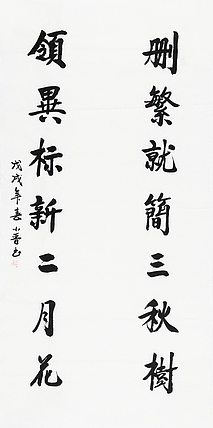 删繁就簡三秋樹
領異标新二月花
戊戌年春小晋书